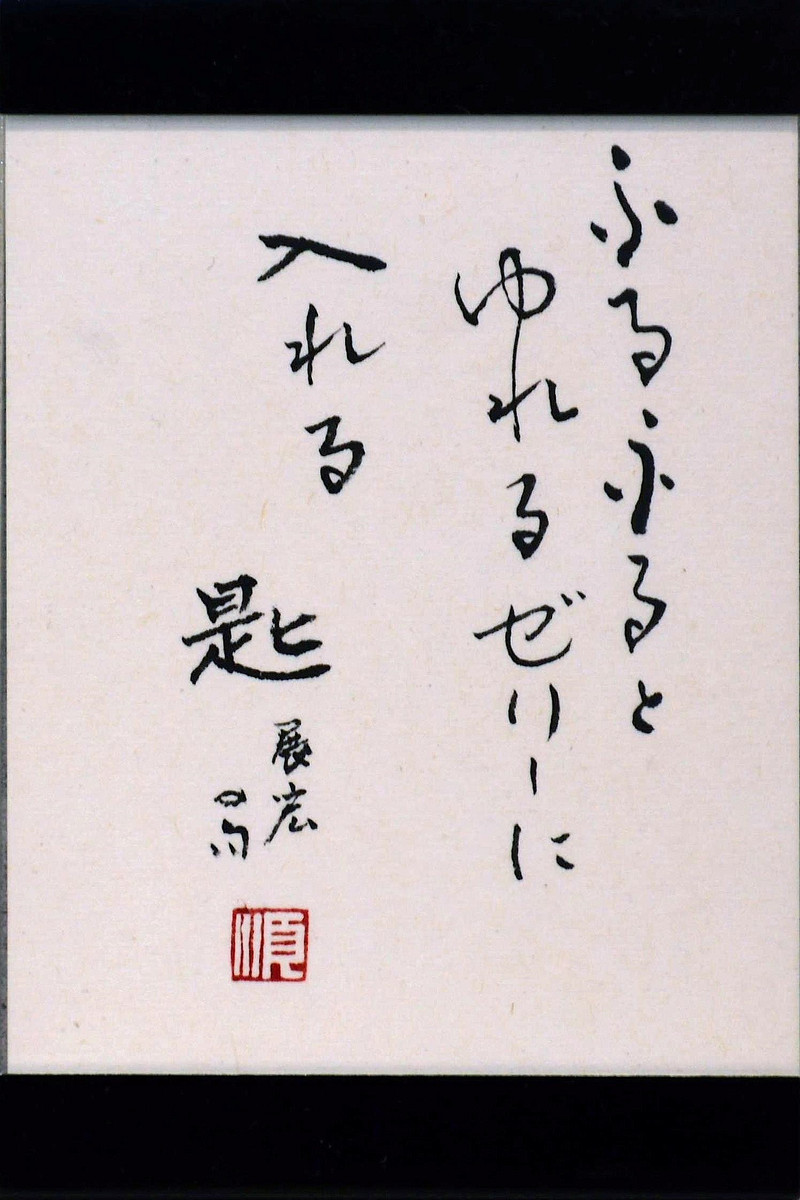 ふるふると
ゆれるゼリーに
入れる
匙
展宏
句
順